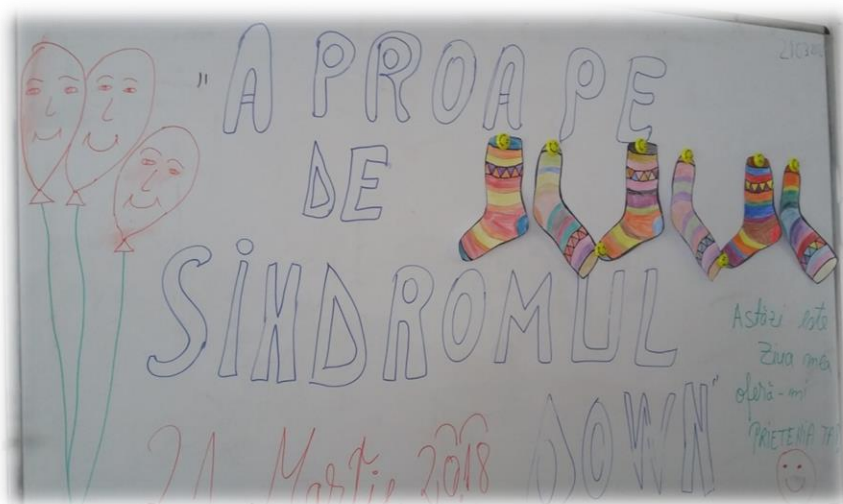 "APROAPE
DE
SINDROMUL
DOWN"
21 Martie 2018
Astăzi este
Ziua mea
oferă-mi
PRIETENIA TA